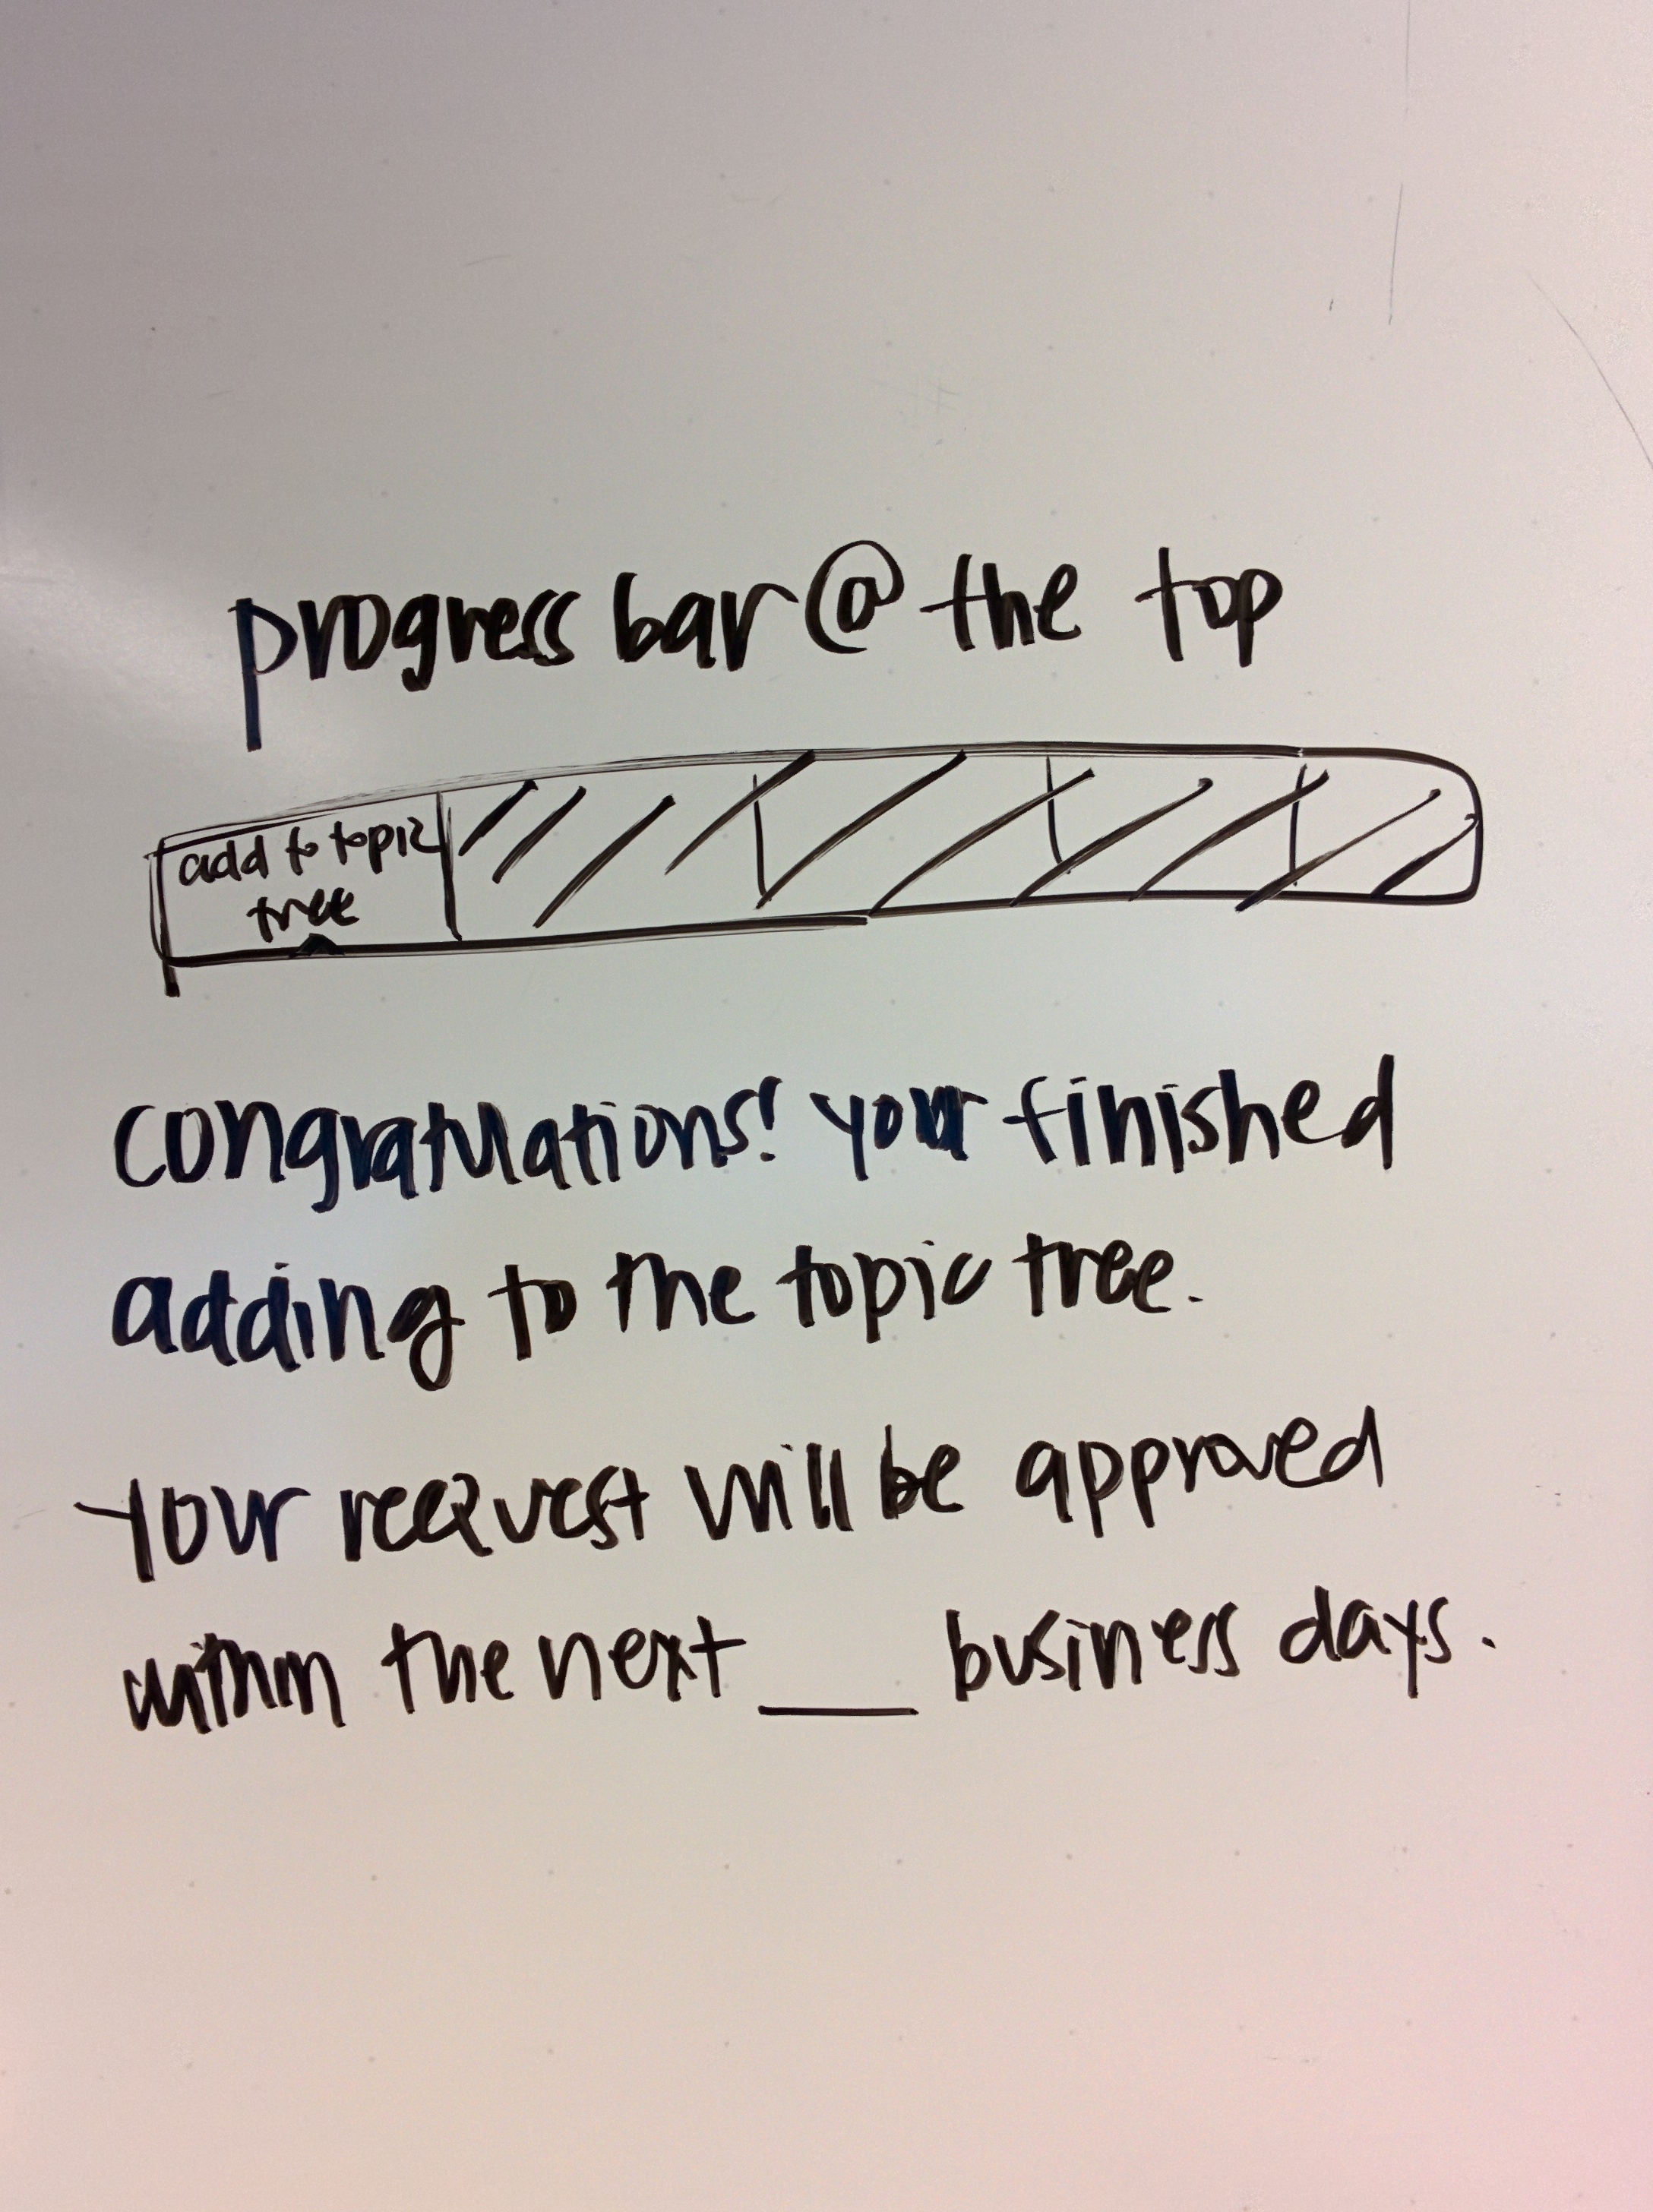 progress bar @ the top
add to topic
tree
congratulations! your finished
adding to the topic tree.
Your request will be approved
within the next ___ business days.